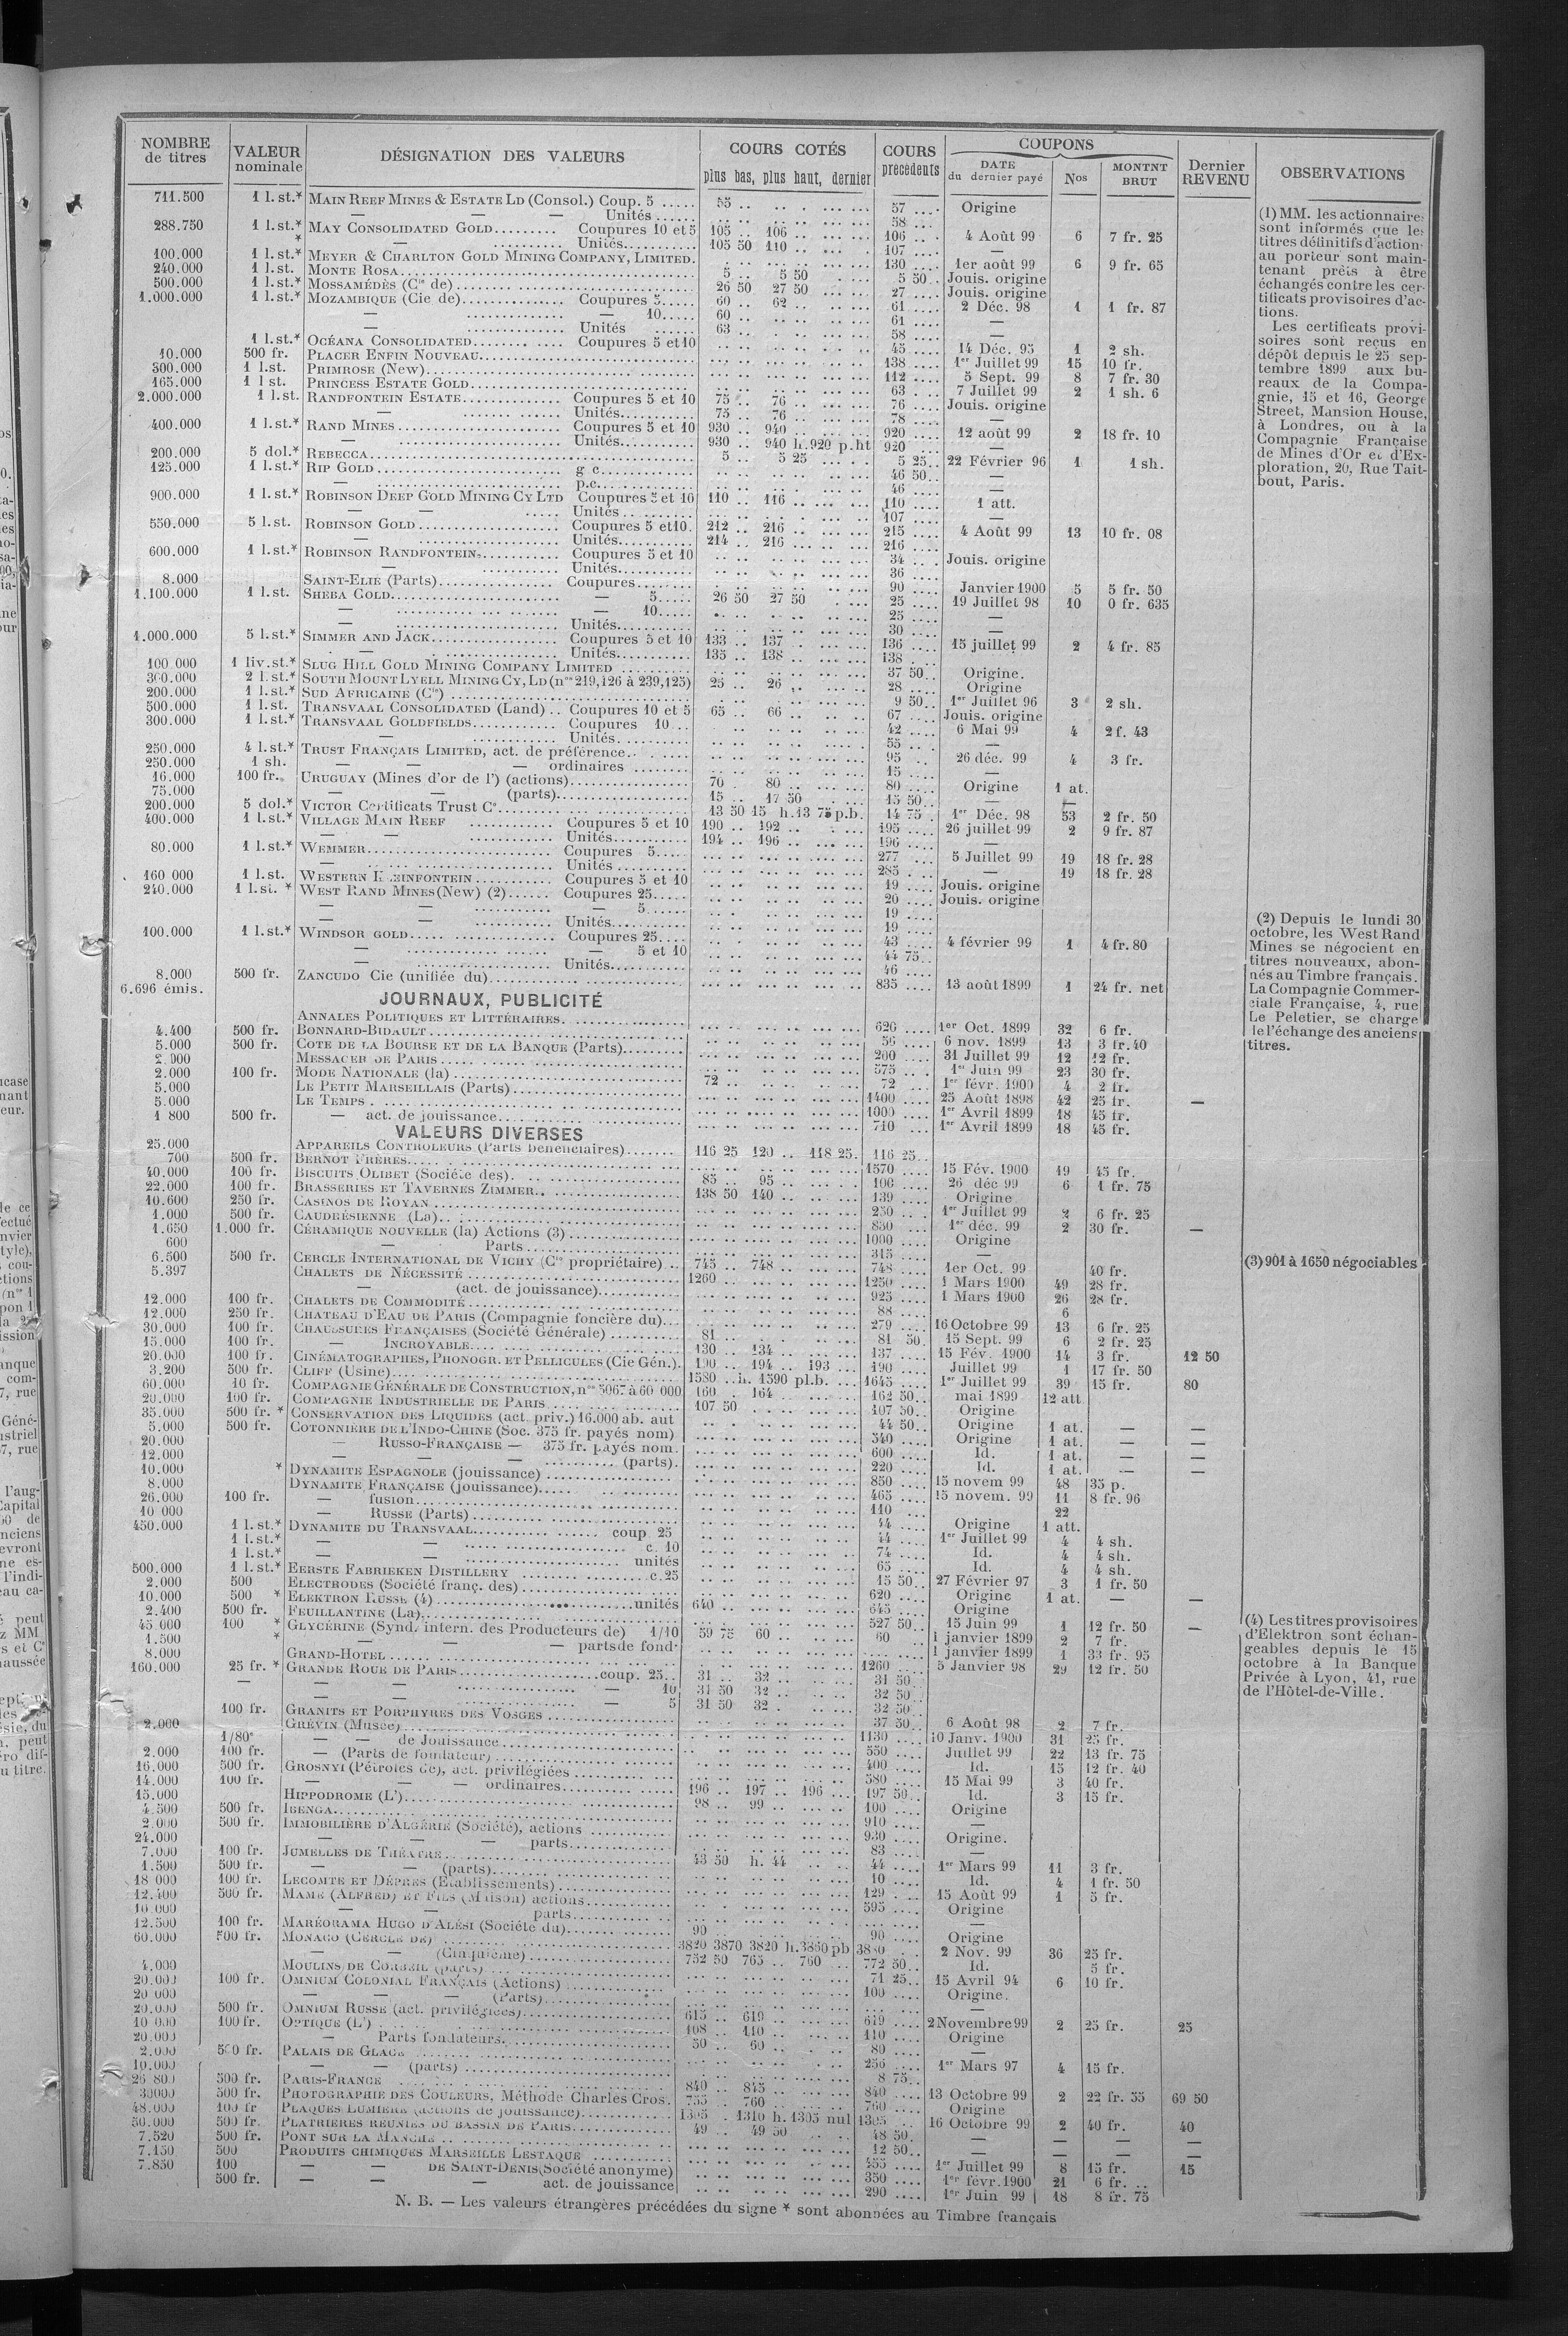 NOMBRE de titres | VALEUR nominale | DÉSIGNATION DES VALEURS | COURS COTÉS plus bas, plus haut, dernier | COURS précédents | COUPONS DATE du dernier payé | Nos | MONTNT BRUT | Dernier REVENU | OBSERVATIONS
711.500 1 l.st.* MAIN REEF MINES & ESTATE LD (Consol.) Coup. 5 ..... 55 .. 57 .... Origine
— — — Unités ...... 58 ....
288.750 1 l.st.* MAY CONSOLIDATED GOLD......... Coupures 10 et 5 105 .. 106 .. 106 .. 4 Août 99 6 7 fr. 25
* — .......... Unités.......... 105 50 110 .. 107 .... —
100.000 1 l.st.* MEYER & CHARLTON GOLD MINING COMPANY, LIMITED. 130 .... 1er août 99 6 9 fr. 65
240.000 1 l.st. MONTE ROSA.......... 5 .. 5 50 5 50.. Jouis. origine
500.000 1 l.st.* MOSSAMÉDÈS (Cie de).......... 26 50 27 50 27 .... Jouis. origine
1.000.000 1 l.st.* MOZAMBIQUE (Cie de).......... Coupures 5..... 60 .. 62 .. 61 .... 2 Déc. 98 1 1 fr. 87
— .......... — 10..... 60 .. 61 .... —
— .......... Unités ...... 63 .. 58 ....
1 l.st.* OCÉANA CONSOLIDATED.......... Coupures 5 et 10 45 .... 14 Déc. 95 1 2 sh.
10.000 500 fr. PLACER ENFIN NOUVEAU.......... 138 .... 1er Juillet 99 15 10 fr.
300.000 1 l.st. PRIMROSE (New).......... 112 .... 5 Sept. 99 8 7 fr. 30
165.000 1 l st. PRINCESS ESTATE GOLD.......... 63 ... 7 Juillet 99 2 1 sh. 6
2.000.000 1 l.st. RANDFONTEIN ESTATE.......... Coupures 5 et 10 75 .. 76 .. 76 .... Jouis. origine
— .......... Unités.......... 75 .. 76 .. 78 .... —
400.000 1 l.st.* RAND MINES.......... Coupures 5 et 10 930 .. 940 .. 920 .... 12 août 99 2 18 fr. 10
— .......... Unités.......... 930 .. 940 h.920 p.ht 920 .... —
200.000 5 dol.* REBECCA.......... 5 .. 5 25 5 25.. 22 Février 96 1 1 sh.
125.000 1 l.st.* RIP GOLD.......... g c.......... 46 50.. —
— .......... p.c.......... 46 .... —
900.000 1 l.st.* ROBINSON DEEP GOLD MINING CY LTD Coupures 5 et 10 110 .. 116 .. 110 .... 1 att.
— — ..... Unités .......... 107 .... —
550.000 5 l.st. ROBINSON GOLD.......... Coupures 5 et 10. 212 .. 216 .. 215 .... 4 Août 99 13 10 fr. 08
— .......... Unités.......... 214 .. 216 .. 216 ....
600.000 1 l.st.* ROBINSON RANDFONTEIN.......... Coupures 5 et 10 34 .... Jouis. origine
— .......... Unités.......... 36 ....
8.000 SAINT-ELIE (Parts).......... Coupures........ 90 .... Janvier 1900 5 5 fr. 50
1.100.000 1 l.st. SHEBA GOLD.......... — 5..... 26 50 27 50 25 .... 19 Juillet 98 10 0 fr. 635
— .......... — 10..... 25 .... —
— .......... Unités.......... 30 .... —
1.000.000 5 l.st.* SIMMER AND JACK.......... Coupures 5 et 10 133 .. 137 .. 136 .... 15 juillet 99 2 4 fr. 85
— .......... Unités.......... 135 .. 138 .. 138 ....
100.000 1 liv.st.* SLUG HILL GOLD MINING COMPANY LIMITED .......... 37 50.. Origine.
300.000 2 l.st.* SOUTH MOUNT LYELL MINING CY, LD (nos 219,126 à 239,125) 25 .. 26 .. 28 .... Origine
200.000 1 l.st.* SUD AFRICAINE (Cie) .......... 9 50.. 1er Juillet 96 3 2 sh.
500.000 1 l.st. TRANSVAAL CONSOLIDATED (Land) .. Coupures 10 et 5 65 .. 66 .. 67 .... Jouis. origine
300.000 1 l.st.* TRANSVAAL GOLDFIELDS.......... Coupures 10... 42 .... 6 Mai 99 4 2 f. 43
— .......... Unités.......... 55 .... —
250.000 4 l.st.* TRUST FRANÇAIS LIMITED, act. de préférence.. 95 .... 26 déc. 99 4 3 fr.
250.000 1 sh. — — — ordinaires ........ 15 .... —
16.000 100 fr. URUGUAY (Mines d'or de l') (actions).......... 70 . 80 .. 80 .... Origine 1 at.
75.000 — — (parts).......... 15 .. 17 50 15 50.. — —
200.000 5 dol.* VICTOR Certificats Trust Co.......... 13 50 15 h.13 75 p.b. 14 75 . 1er Déc. 98 53 2 fr. 50
400.000 1 l.st.* VILLAGE MAIN REEF .......... Coupures 5 et 10 190 .. 192 .. 195 .... 26 juillet 99 2 9 fr. 87
— — .......... Unités.......... 194 .. 196 .. 196 .... —
80.000 1 l.st.* WEMMER.......... Coupures 5..... 277 ... 5 Juillet 99 19 18 fr. 28
— .......... Unités .......... 285 .... — 19 18 fr. 28
160 000 1 l.st. WESTERN .......... Coupures 5 et 10 19 .... Jouis. origine
240.000 1 l.st. * WEST RAND MINES (New) (2)...... Coupures 25..... 20 .... Jouis. origine
— — .......... — 5...... 19 ....
— — .......... Unités.......... 19 ....
100.000 1 l.st.* WINDSOR GOLD.......... Coupures 25.... 43 .... 4 février 99 1 4 fr. 80
— .......... — 5 et 10 44 75..
— .......... Unités.......... 46 ....
8.000 500 fr. ZANCUDO Cie (unifiée du).......... 835 .... 13 août 1899 1 24 fr. net
6.696 émis.
JOURNAUX, PUBLICITÉ
ANNALES POLITIQUES ET LITTÉRAIRES. ..........
4.400 500 fr. BONNARD-BIDAULT.......... 620 .... 1er Oct. 1899 32 6 fr.
5.000 500 fr. COTE DE LA BOURSE ET DE LA BANQUE (Parts).......... 56 .... 6 nov. 1899 13 3 fr. 40
2.000 MESSAGER DE PARIS.......... 200 .... 31 Juillet 99 12 12 fr.
2.000 100 fr. MODE NATIONALE (la).......... 575 .. . 1er Juin 99 23 30 fr.
5.000 LE PETIT MARSEILLAIS (Parts).......... 72 .. 72 .... 1er févr. 1900 4 2 fr.
5.000 LE TEMPS.......... 1400 .... 25 Août 1898 42 25 fr. —
1 800 500 fr. — act. de jouissance.......... 1000 .... 1er Avril 1899 18 45 fr.
710 .... 1er Avril 1899 18 45 fr.
VALEURS DIVERSES
25.000 APPAREILS CONTROLEURS (Parts bénéficiaires)....... 116 25 120 .. 118 25. 116 25..
700 500 fr. BERNOT FRÈRES.......... 1570 .... 15 Fév. 1900 19 45 fr.
40.000 100 fr. BISCUITS OLIBET (Société des).......... 85 .. 95 .. 100 .... 26 déc 99 6 1 fr. 75
22.000 100 fr. BRASSERIES ET TAVERNES ZIMMER.......... 138 50 140 .. 139 .... Origine
10.600 250 fr. CASINOS DE ROYAN.......... 250 .... 1er Juillet 99 2 6 fr. 25
1.000 500 fr. CAUDRÉSIENNE (La).......... 850 .... 1er déc. 99 2 30 fr. —
1.650 1.000 fr. CÉRAMIQUE NOUVELLE (la) Actions (3).......... 1000 .... Origine
600 — Parts.......... 315 .... —
6.500 500 fr. CERCLE INTERNATIONAL DE VICHY (Cie propriétaire) .. 745 .. 748 .. 748 .... 1er Oct. 99 40 fr.
5.397 CHALETS DE NÉCESSITÉ.......... 1260 .. 1250 .... 1 Mars 1900 49 28 fr.
— (act. de jouissance).......... 925 .... 1 Mars 1900 26 28 fr.
12.000 100 fr. CHALETS DE COMMODITÉ.......... 88 .... 6
12.000 250 fr. CHATEAU D'EAU DE PARIS (Compagnie foncière du)... 279 .... 16 Octobre 99 13 6 fr. 25
30.000 100 fr. CHAUSSURES FRANÇAISES (Société Générale) .......... 81 .. 81 50. 15 Sept. 99 6 2 fr. 25
15.000 100 fr. — INCROYABLE.......... 130 .. 134 .. 137 .... 15 Fév. 1900 14 3 fr. 12 50
20.000 100 fr. CINÉMATOGRAPHES, PHONOGR. ET PELLICULES (Cie Gén.). 190 .. 194 .. 193 ... 190 .... Juillet 99 1 17 fr. 50
3.200 500 fr. CLIFF (Usine).......... 1580 .. h. 1590 pl.b. 1645 .... 1er Juillet 99 39 15 fr. 80
60.000 10 fr. COMPAGNIE GÉNÉRALE DE CONSTRUCTION, nos 5067 à 60 000 160 . 164 .. 162 50.. mai 1899 12 att
20.000 100 fr. COMPAGNIE INDUSTRIELLE DE PARIS.......... 107 50 107 50.. Origine
35.000 500 fr. * CONSERVATION DES LIQUIDES (act. priv.) 16.000 ab. aut 44 50.. Origine 1 at. — —
5.000 500 fr. COTONNIERE DE L'INDO-CHINE (Soc. 375 fr. payés nom) 540 .... Origine 1 at. — —
20.000 — RUSSO-FRANÇAISE — 375 fr. payés nom. 600 .... Id. 1 at. — —
12.000 — — — .......... (parts). 220 .... Id. 1 at. — —
10.000 * DYNAMITE ESPAGNOLE (jouissance).......... 850 .... 15 novem 99 48 35 p.
8.000 DYNAMITE FRANÇAISE (jouissance).......... 465 .... 15 novem. 99 11 8 fr. 96
26.000 100 fr. — fusion.......... 110 .... 22
10 000 — RUSSE (Parts).......... 44 .... Origine 1 att.
450.000 1 l.st.* DYNAMITE DU TRANSVAAL.......... coup 25 44 .... 1er Juillet 99 4 4 sh.
1 l.st.* — — .......... c. 10 74 .... Id. 4 4 sh.
1 l.st.* — — .......... unités 65 .... Id. 4 4 sh.
500.000 1 l.st.* EERSTE FABRIEKEN DISTILLERY .......... c.25 15 50.. 27 Février 97 3 1 fr. 50
2.000 500 ELECTRODES (Société franç. des).......... 620 .... Origine 1 at. — —
10.000 500 * ELEKTRON RUSSE (4)..........unités 640 .. 645 .... Origine
2.400 500 fr. FEUILLANTINE (La).......... 527 50.. 15 Juin 99 1 12 fr. 50 —
45 000 100 * GLYCÉRINE (Synd. intern. des Producteurs de) 1/10 59 75 60 .. 60 .. 1 janvier 1899 2 7 fr.
1.500 * — — — parts de fondr 1 janvier 1899 1 33 fr. 95
8.000 GRAND-HOTEL.......... 1260 .... 5 Janvier 98 29 12 fr. 50
160.000 25 fr. * GRANDE ROUE DE PARIS..........coup. 25.. 31 .. 32 .. 31 50
— — — — .......... — 10 31 50 32 .. 32 50
— — .......... — 5 31 50 32 . 32 50
100 fr. GRANITS ET PORPHYRES DES VOSGES.......... 37 50.. 6 Août 98 2 7 fr.
2.000 GRÉVIN (Musée).......... 1130 .... 10 Janv. 1900 31 25 fr.
1/80e — — de Jouissance.......... 550 .... Juillet 99 22 13 fr. 75
2.000 100 fr. — (Parts de fondateur).......... 400 .... Id. 15 12 fr. 40
16.000 500 fr. GROSNYI (Pétroles de), act. privilégiées.......... 580 .... 15 Mai 99 3 40 fr.
14.000 100 fr. — — — ordinaires.......... 196 .. 197 .. 196 ... 197 50.. Id. 3 15 fr.
15.000 HIPPODROME (L').......... 98 .. 99 .. 100 .... Origine
4.500 500 fr. IBENGA.......... 910 .... —
2.000 500 fr. IMMOBILIÈRE D'ALGÉRIE (Société), actions.......... 930 .... Origine.
24.000 — — — parts.......... 83 .... —
7.000 100 fr. JUMELLES DE THÉATRE.......... 43 50 h. 44 44 .... 1er Mars 99 11 3 fr.
1.500 500 fr. — — (parts).......... 10 .... Id. 4 1 fr. 50
18 000 100 fr. LECOMTE ET DÉPRÉS (Etablissements).......... 129 .... 15 Août 99 1 5 fr.
12.400 500 fr. MAME (ALFRED) ET FILS (Maison) actions.......... 595 .... Origine
10.000 — — parts.......... —
12.500 100 fr. MARÉORAMA HUGO D'ALÉSI (Société du).......... 90 .. 90 .... Origine
60.000 500 fr. MONACO (CERCLE DE).......... 3820 3870 3820 h.3850 pb 3880 2 Nov. 99 36 25 fr.
— — (Cinquième).......... 752 50 765 .. 760 .. 772 50.. Id. 5 fr.
4.000 MOULINS DE CORBEIL (parts).......... 71 25.. 15 Avril 94 6 10 fr.
20.000 100 fr. OMNIUM COLONIAL FRANÇAIS (Actions).......... 100 .... Origine.
20 000 — — — (Parts).......... —
20.000 500 fr. OMNIUM RUSSE (act. privilégiées).......... 615 .. 619 .. 619 .... 2 Novembre 99 2 25 fr. 25
10 000 100 fr. OPTIQUE (L').......... 108 .. 110 .. 110 .... Origine
20.000 — Parts fondateurs.......... 50 .. 60 .. 80 .... —
2.000 500 fr. PALAIS DE GLACE.......... 256 .... 1er Mars 97 4 15 fr.
10.000 — — (parts).......... 8 75..
26 800 500 fr. PARIS-FRANCE.......... 840 .. 845 .. 840 .... 13 Octobre 99 2 22 fr. 55 69 50
30000 500 fr. PHOTOGRAPHIE DES COULEURS, Méthode Charles Cros. 755 .. 760 .. 760 .... Origine
48.000 100 fr PLAQUES LUMIÈRE (actions de jouissance).......... 1305 . 1310 h. 1305 nul 1305 .. 16 Octobre 99 2 40 fr. 40
50.000 500 fr. PLATRIERES RÉUNIES DU BASSIN DE PARIS.......... 49 .. 49 50 48 50. — — — —
7.520 500 fr. PONT SUR LA MANCHE.......... 12 50.. — — — —
7.150 500 PRODUITS CHIMIQUES MARSEILLE LESTAQUE.......... 455 .... 1er Juillet 99 8 15 fr. 15
7.850 100 — — DE SAINT-DENIS (Société anonyme) 350 .... 1er févr. 1900 21 6 fr. ..
500 fr. — — — act. de jouissance 290 .... 1er Juin 99 18 8 fr. 75
N. B. — Les valeurs étrangères précédées du signe * sont abonnées au Timbre français
(1) MM. les actionnaires
sont informés que les
titres définitifs d'action
au porteur sont main-
tenant prêts à être
échangés contre les cer-
tificats provisoires d'ac-
tions.
Les certificats provi-
soires sont reçus en
dépôt depuis le 25 sep-
tembre 1899 aux bu-
reaux de la Compa-
gnie, 15 et 16, George
Street, Mansion House,
à Londres, ou à la
Compagnie Française
de Mines d'Or et d'Ex-
ploration, 20, Rue Tait-
bout, Paris.
(2) Depuis le lundi 30
octobre, les West Rand
Mines se négocient en
titres nouveaux, abon-
nés au Timbre français.
La Compagnie Commer-
ciale Française, 4, rue
Le Peletier, se charge
de l'échange des anciens
titres.
(3) 901 à 1650 négociables
(4) Les titres provisoires
d'Elektron sont échan-
geables depuis le 15
octobre à la Banque
Privée à Lyon, 41, rue
de l'Hôtel-de-Ville.